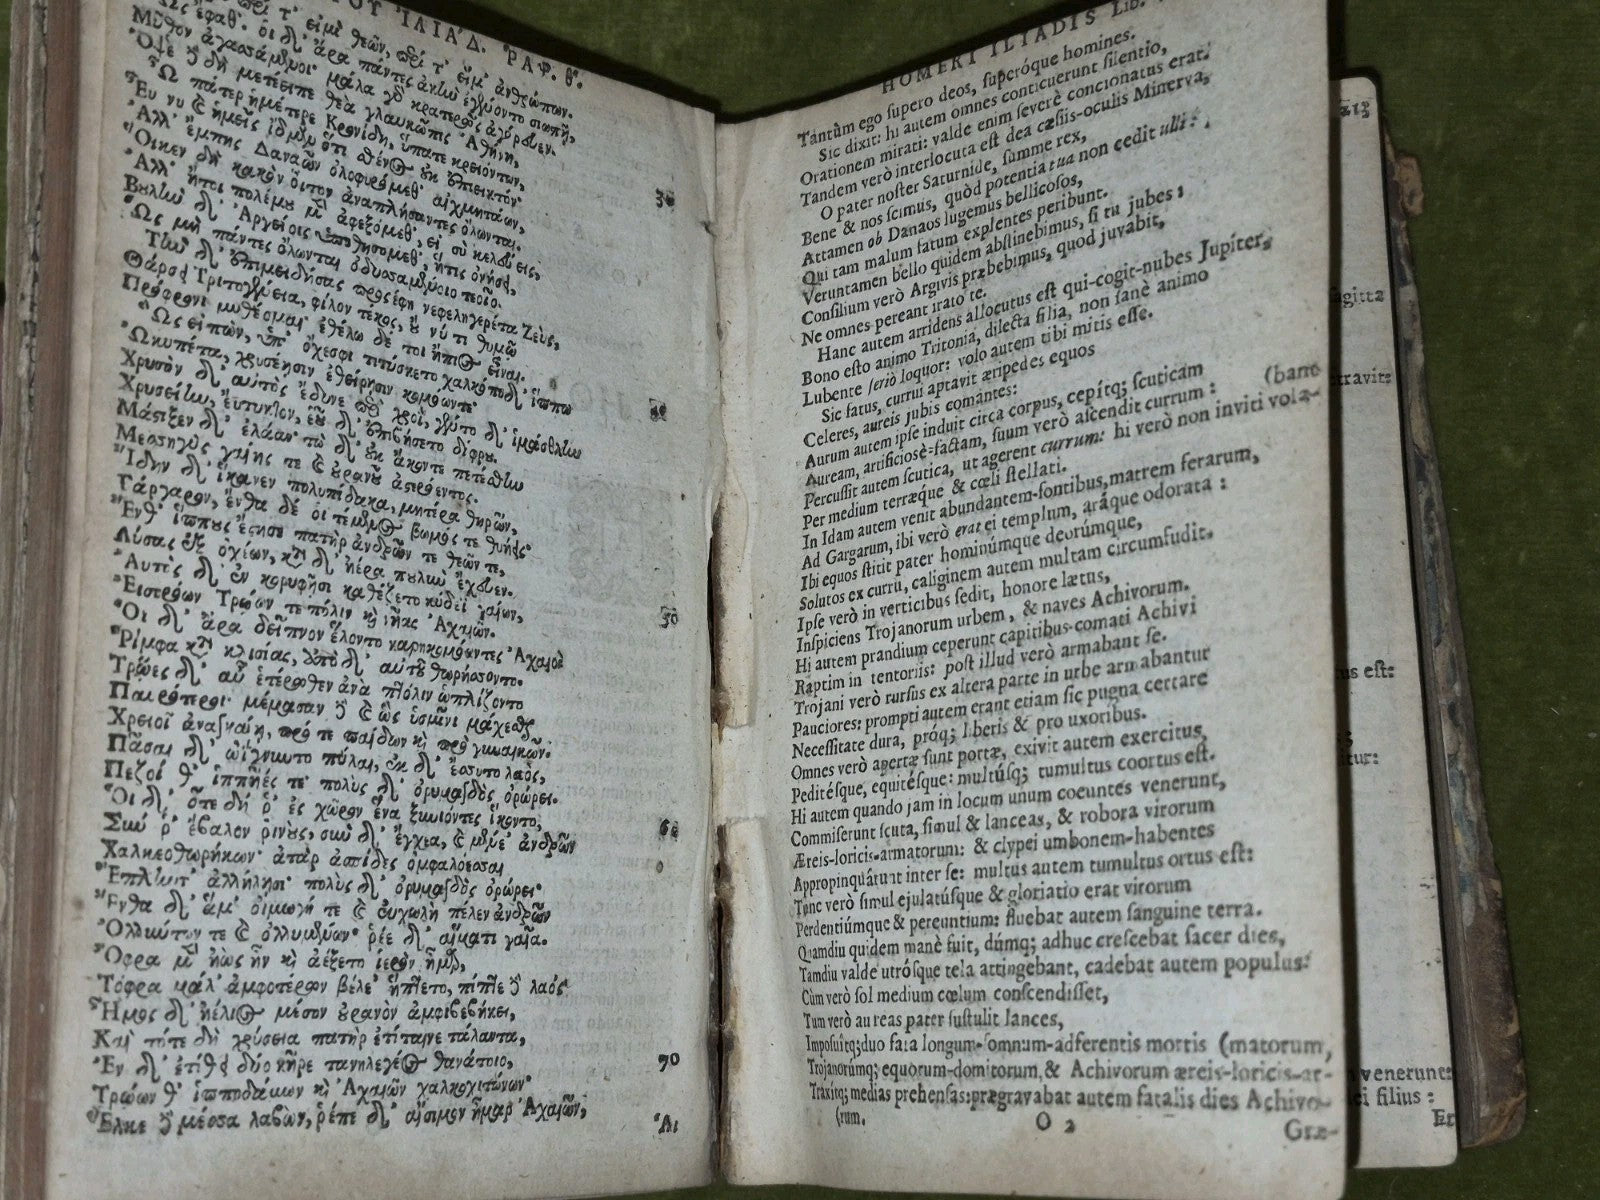 ΟΥ ἸΛΙΆΔ. ῬΑΨ. θ.
τ' εἰμὶ θεῶν, περί τ' εἴμ' ἀνθρώπων.
Ὣς ἔφαθ'· οἱ δ' ἄρα πάντες ἀκὴν ἐγένοντο σιωπῇ,
Μῦθον ἀγασσάμενοι· μάλα γὸ κρατερῶς ἀγόρευεν.
Ὀψὲ ȣ̓ δὴ μετέειπε θεὰ γλαυκῶπις Ἀθήνη,
Ὦ πάτερ ἡμέτερε Κρονίδη, ὕπατε κρειόντων,
Εὖ νυ καὶ ἡμεῖς ἴδμεν ὅτι σθένος ȣ̓κ ἐπιεικτόν·
Ἀλλ' ἔμπης Δαναῶν ὀλοφυρόμεθ' αἰχμητάων, 30
Οἵ κεν δὴ κακὸν οἶτον ἀναπλήσαντες ὄλωνται.
Ἀλλ' ἤτοι πολέμȣ μὲν ἀφεξόμεθ', εἰ σὺ κελεύεις,
Βȣλὴν δ' Ἀργείοις ὑποθησόμεθ', ἥτις ὀνήσει,
Ὡς μὴ πάντες ὄλωνται ὀδυσσαμένοιο τεοῖο.
Τὴν δ' ἐπιμειδήσας προσέφη νεφεληγερέτα Ζεὺς,
Θάρσει Τριτογένεια, φίλον τέκος, ȣ̓ νύ τι θυμῷ
Πρόφρονι μυθέομαι· ἐθέλω δέ τοι ἤπιος εἶναι.
Ὣς εἰπὼν, ὑπ' ὄχεσφι τιτύσκετο χαλκόποδ' ἵππω
Ὠκυπέτα, χρυσέῃσιν ἐθείρῃσιν κομόωντε·
Χρυσὸν δ' αὐτὸς ἔδυνε περὶ χροῒ, γέντο δ' ἱμάσθλην 40
Χρυσείην, εὔτυκτον, ἑȣ͂ δ' ἐπεβήσετο δίφρȣ.
Μάστιξεν δ' ἐλάαν· τὼ δ' ȣ̓κ ἄκοντε πετέσθην
Μεσσηγὺς γαίης τε καὶ ȣ̓ρανȣ͂ ἀστερόεντος.
Ἴδην δ' ἵκανεν πολυπίδακα, μητέρα θηρῶν,
Γάργαρον, ἔνθα δέ οἱ τέμενος βωμός τε θυήεις·
Ἔνθ' ἵππȣς ἔστησε πατὴρ ἀνδρῶν τε θεῶν τε,
Λύσας ἐξ ὀχέων, κατὰ δ' ἠέρα πȣλὺν ἔχευεν.
Αὐτὸς δ' ἐν κορυφῇσι καθέζετο κύδεϊ γαίων,
Εἰσορόων Τρώων τε πόλιν καὶ νῆας Ἀχαιῶν.
Οἱ δ' ἄρα δεῖπνον ἕλοντο καρηκομόωντες Ἀχαιοὶ 50
Ῥίμφα κατὰ κλισίας, ἀπὸ δ' αὐτȣ͂ θωρήσσοντο.
Τρῶες δ' αὖ ἑτέρωθεν ἀνὰ πτόλιν ὡπλίζοντο
Παυρότεροι· μέμασαν ȣ̓ καὶ ὣς ὑσμῖνι μάχεσθαι
Χρειοῖ ἀναγκαίῃ, πρό τε παίδων καὶ πρὸ γυναικῶν.
Πᾶσαι δ' ὠΐγνυντο πύλαι, ἐκ δ' ἔσσυτο λαὸς,
Πεζοί θ' ἱππῆές τε· πολὺς δ' ὀρυμαγδὸς ὀρώρει.
Οἱ δ' ὅτε δή ῥ' ἐς χῶρον ἕνα ξυνιόντες ἵκοντο,
Σύν ῥ' ἔβαλον ῥινȣ̀ς, σὺν δ' ἔγχεα, καὶ μένε' ἀνδρῶν 60
Χαλκεοθωρήκων· ἀτὰρ ἀσπίδες ὀμφαλόεσσαι
Ἔπληντ' ἀλλήλῃσι· πολὺς δ' ὀρυμαγδὸς ὀρώρει·
Ἔνθα δ' ἅμ' οἰμωγή τε καὶ εὐχωλὴ πέλεν ἀνδρῶν
Ὀλλύντων τε καὶ ὀλλυμένων· ῥέε δ' αἵματι γαῖα.
Ὄφρα μὲν ἠὼς ἦν καὶ ἀέξετο ἱερὸν ἦμαρ,
Τόφρα μάλ' ἀμφοτέρων βέλε' ἥπτετο, πῖπτε ȣ̓ λαός·
Ἦμος δ' ἠέλιος μέσον ȣ̓ρανὸν ἀμφιβεβήκει,
Καὶ τότε δὴ χρύσεια πατὴρ ἐτίταινε τάλαντα,
Ἐν δ' ἐτίθει δύο κῆρε τανηλεγέος θανάτοιο, 70
Τρώων θ' ἱπποδάμων καὶ Ἀχαιῶν χαλκοχιτώνων·
Ἕλκε ȣ̓ μέσσα λαβὼν, ῥέπε δ' αἴσιμον ἦμαρ Ἀχαιῶν,
Ἁι
HOMERI ILIADIS LIB.
Tantùm ego supero deos, superóque homines.
Sic dixit: hi autem omnes conticuerunt silentio,
Orationem mirati: valde enim severè concionatus erat.
Tandem verò interlocuta est dea cæsiis-oculis Minerva,
O pater noster Saturnide, summe rex,
Bene & nos scimus, quòd potentia tua non cedit ulli:
Attamen ob Danaos lugemus bellicosos,
Qui tam malum fatum explentes peribunt.
Veruntamen bello quidem abstinebimus, si tu jubes:
Consilium verò Argivis præbebimus, quod juvabit,
Ne omnes pereant irato te.
Hanc autem arridens allocutus est qui-cogit-nubes Jupiter,
Bono esto animo Tritonia, dilecta filia, non sanè animo
Lubente seriò loquor: volo autem tibi mitis esse.
Sic fatus, currui aptavit æripedes equos
Celeres, aureis jubis comantes:
Aurum autem ipse induit circa corpus, cepítq; scuticam
Auream, artificiosè-factam, suum verò ascendit currum: (bant
Percussit autem scutica, ut agerent currum: hi verò non inviti vola-
Per medium terræque & cœli stellati.
In Idam autem venit abundantem-fontibus, matrem ferarum,
Ad Gargarum, ibi verò erat ei templum, aráque odorata:
Ibi equos stitit pater hominúmque deorúmque,
Solutos ex curru, caliginem autem multam circumfudit.
Ipse verò in verticibus sedit, honore lætus,
Inspiciens Trojanorum urbem, & naves Achivorum.
Hi autem prandium ceperunt capitibus-comati Achivi
Raptim in tentoriis: post illud verò armabant se.
Trojani verò rursus ex altera parte in urbe armabantur
Pauciores: prompti autem erant etiam sic pugna certare
Necessitate dura, próq; liberis & pro uxoribus.
Omnes verò apertæ sunt portæ, exivit autem exercitus,
Peditésque, equitésque: multúsq; tumultus coortus est.
Hi autem quando jam in locum unum coeuntes venerunt,
Commiserunt scuta, simul & lanceas, & robora virorum
Æreis-loricis-armatorum: & clypei umbonem-habentes
Appropinquârunt inter se: multus autem tumultus ortus est:
Tunc verò simul ejulatúsque & gloriatio erat virorum
Perdentiúmque & pereuntium: fluebat autem sanguine terra.
Quamdiu quidem manè fuit, dúmq; adhuc crescebat sacer dies,
Tamdiu valde utrósque tela attingebant, cadebat autem populus:
Cùm verò sol medium cœlum conscendisset,
Tum verò aureas pater sustulit lances,
Imposuitq; duo fata longum-somnum-adferentis mortis (matorum,
Trojanorúmq; equorum-domitorum, & Achivorum æreis-loricis-ar-
Traxítq; medias prehensas: prægravabat autem fatalis dies Achivo-
(rum.
O 2
Græ-
213
sagitta
travit:
us est:
tur:
venerunt
ci filius:
Et